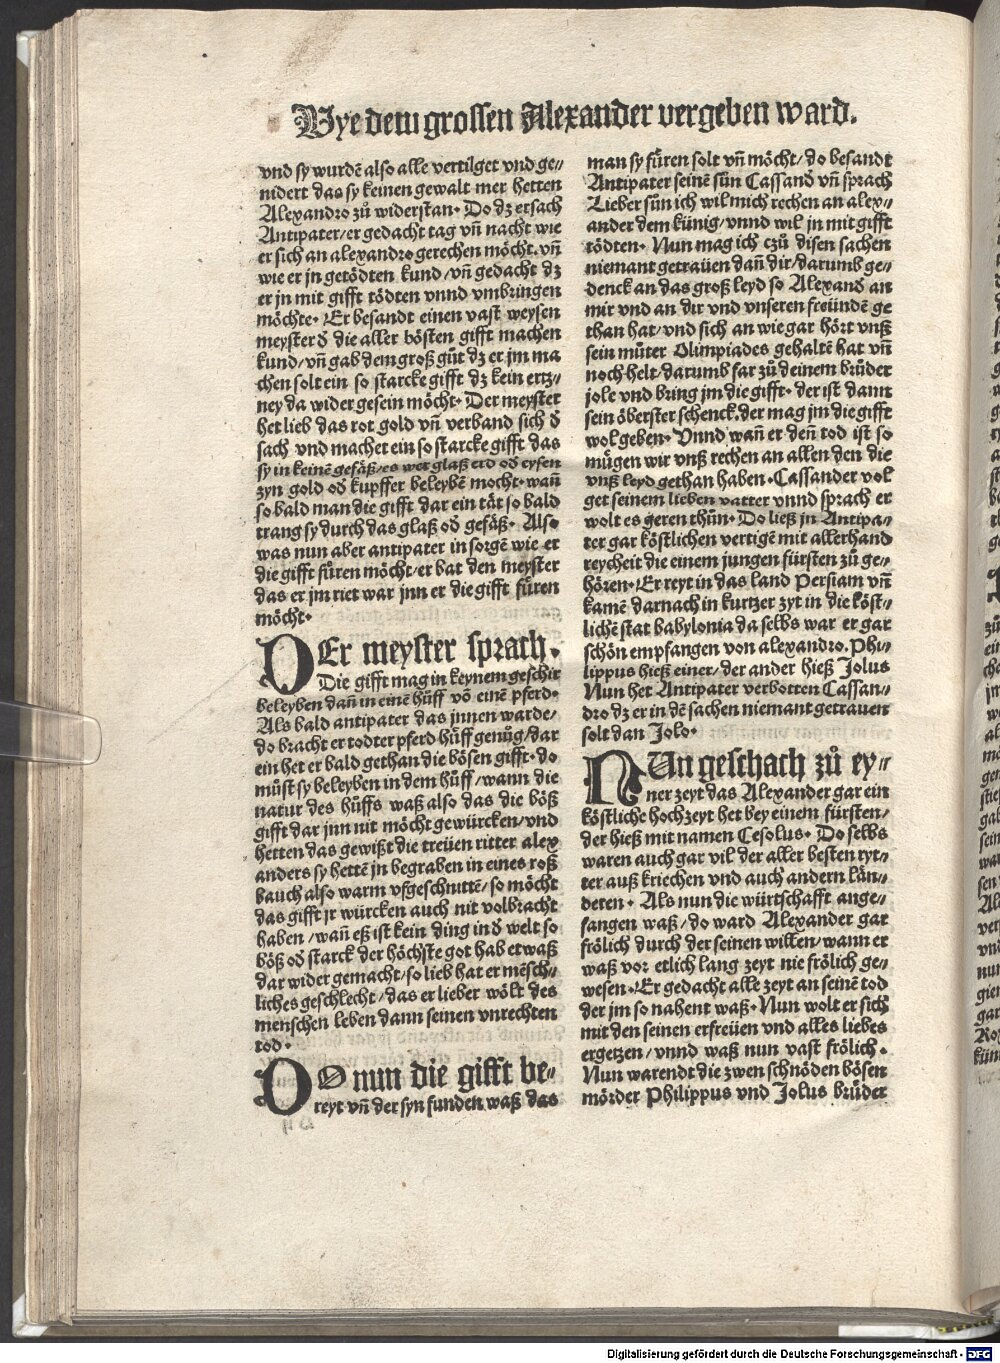 Wye dem grossen Alexander vergeben ward.
vnd sy wurdẽ also alle vertilget vnd ge⸗
nidert das sy keinen gewalt mer hetten
Alexandro zů widerstan. Do dz ersach
Antipater/er gedacht tag vñ nacht wie
er sich an alexandro gerechen möcht. vñ
wie er jn getödten kund/vñ gedacht dz
er jn mit gifft tödten vnnd vmbringen
möchte. Er besandt einen vast weysen
meyster đ die aller bösten gifft machen
kund/vñ gab dem groß gůt dz er jm ma
chen solt ein so starcke gifft dz kein ertz⸗
ney da wider gesein möcht. Der meyster
het lieb das rot gold vñ verband sich đ
sach vnd machet ein so starcke gifft das
sy in keinẽ gefäß/es wer glaß erd ođ eysen
zyn gold ođ kupffer beleybẽ mocht. wañ
so bald man die gifft dar ein tät so bald
trang sy durch das glaß ođ gefäß. Also
was nun aber antipater in sorgẽ wie er
die gifft fůren möcht/er bat den meyster
das er jm riet war jnn er die gifft fůren
möcht.
DEr meyster sprach.
Die gifft mag in keynem geschir
beleyben dañ in einẽ hůff võ einẽ pferd.
Als bald antipater das jnnen warde/
do bracht er todter pferd hůff genůg/dar
ein het er bald gethan die bösen gifft. do
můst sy beleyben in dem hůff/wann die
natur des hůffs waß also das die böß
gifft dar jnn nit möcht gewürcken/vnd
hetten das gewißt die treüen ritter alex
anders sy hettẽ jn begraben in eines roß
bauch also warm vfgeschnittẽ/so möcht
das gifft jr würcken auch nit volbracht
haben/wañ eß ist kein ding in đ welt so
böß ođ starck der höchste got hab etwaß
dar wider gemacht/so lieb hat er mẽsch⸗
liches geschlecht/das er lieber wölt des
menschen leben dann seinen vnrechten
tod.
DO nun die gifft be⸗
reyt vñ der syn funden waß das
man sy fůren solt vñ möcht/do besandt
Antipater seinẽ sůn Cassanđ vñ sprach
Lieber sůn ich wil mich rechen an alex⸗
ander dem künig/vnnd wil jn mit gifft
tödten. Nun mag ich czů disen sachen
niemant getraüen dañ dir/darumb ge⸗
denck an das groß leyd so Alexanđ an
mir vnd an dir vnd vnseren freündẽ ge
than hat/vnd sich an wie gar hört vnß
sein můter Olimpiades gehaltẽ hat vñ
noch helt/darumb far zů deinem brůder
jole vnd bring jm die gifft. der ist dann
sein öberster schenck.der mag jm die gifft
wol geben. Vnnd wañ er deñ tod ist so
mügen wir vnß rechen an allen den die
vnß leyd gethan haben. Cassander vol
get seinem lieben vatter vnnd sprach er
wolt es geren thůn. Do ließ jn Antipa⸗
ter gar köstlichen vertigẽ mit allerhand
reycheit die einem jungen fürsten zů ge⸗
hören. Er reyt in das land Persiam vñ
kamẽ darnach in kurtzer zyt in die köst⸗
lichẽ stat babylonia da selbs war er gar
schön empfangen von alexandro. Phi⸗
lippus hieß einer/der ander hieß Jolus
Nun het Antipater verbotten Cassan⸗
dro dz er in dẽ sachen niemant getrauen
solt dan Jolo.
NUn geschach zů ey⸗
ner zeyt das Alexander gar ein
köstliche hochzeyt het bey einem fürsten/
der hieß mit namen Cesolus. Do selbs
waren auch gar vil der aller besten ryt⸗
ter auß kriechen vnd auch andern län⸗
deren. Als nun die würtschafft ange⸗
fangen waß/do ward Alexander gar
frölich durch der seinen willen/wann er
waß vor etlich lang zeyt nie frölich ge⸗
wesen. Er gedacht alle zeyt an seinẽ tod
der jm so nahent waß. Nun wolt er sich
mit den seinen erfreüen vnd alles liebes
ergetzen/vnnd waß nun vast frölich.
Nun warendt die zwen schnöden bösen
mörder Philippus vnd Jolus brůder
Digitalisierung gefördert durch die Deutsche Forschungsgemeinschaft - DFG